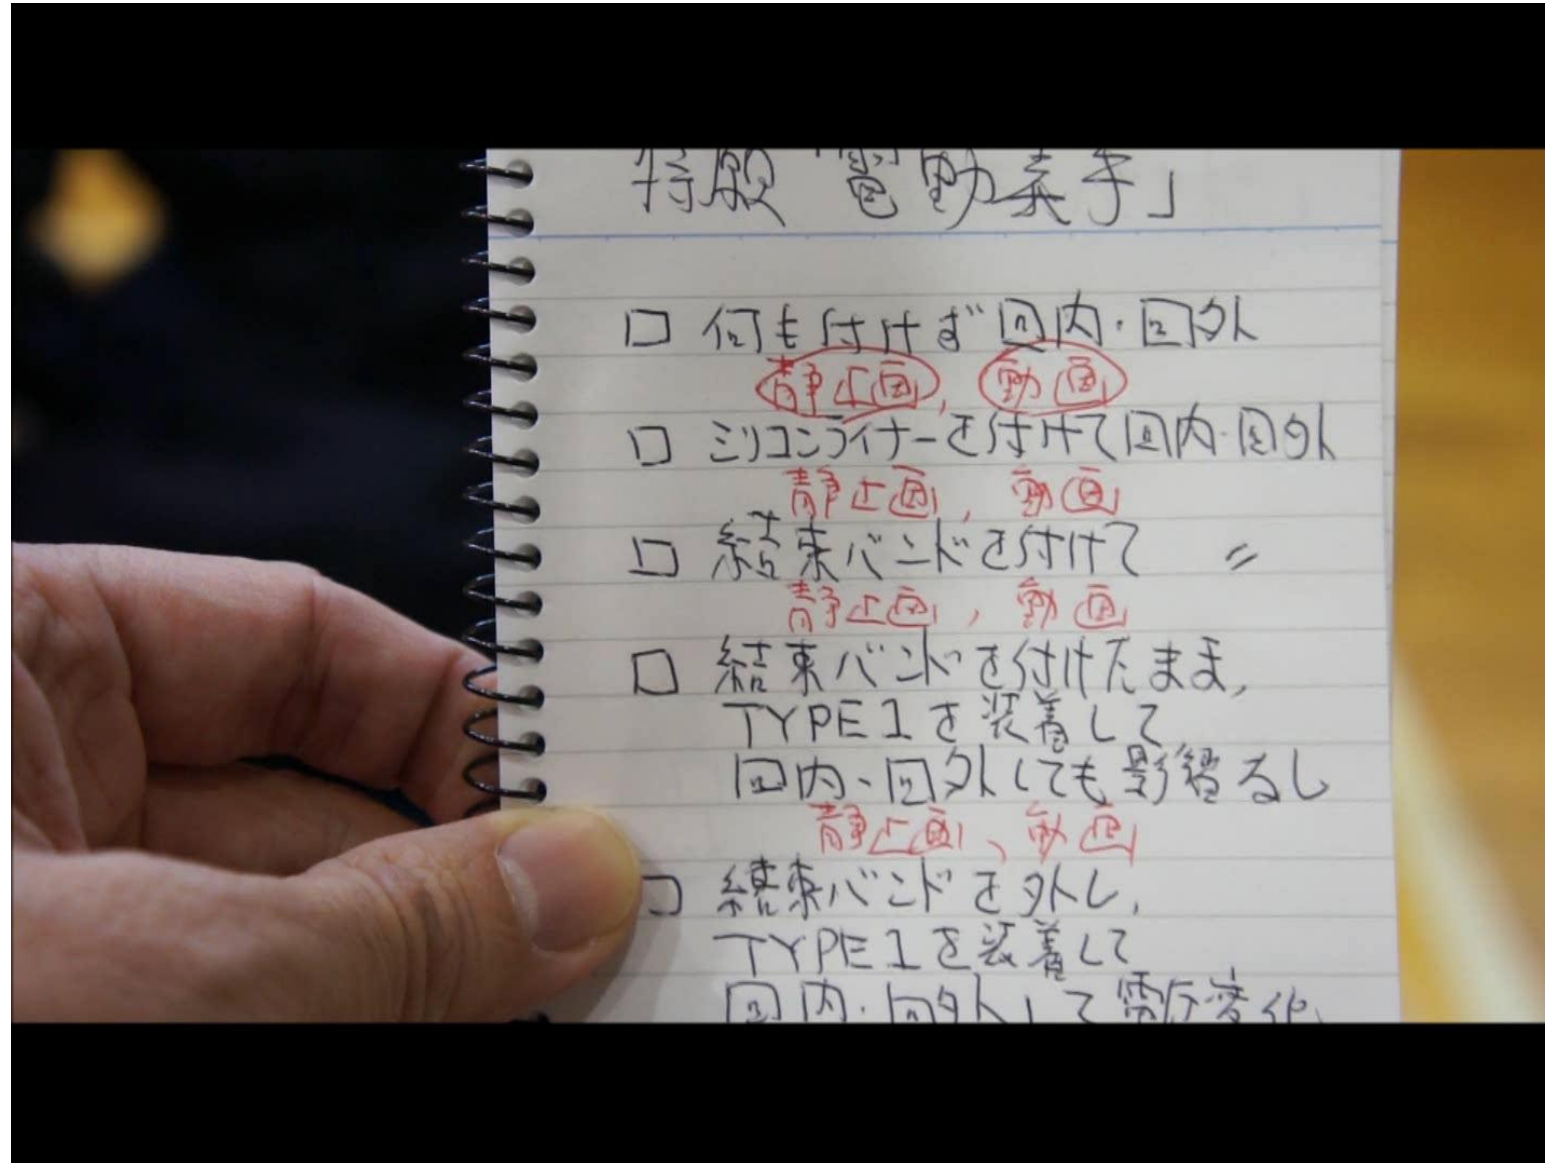 特願「電動義手」
□ 何も付けず回内・回外
静止画, 動画
□ シリコンライナーを付けて回内・回外
静止画, 動画
□ 結束バンドを付けて 〃
静止画, 動画
□ 結束バンドを付けたまま,
TYPE1を装着して
回内、回外しても影響なし
静止画、動画
□ 結束バンドを外し,
TYPE1を装着して
回内・回外して電圧変化